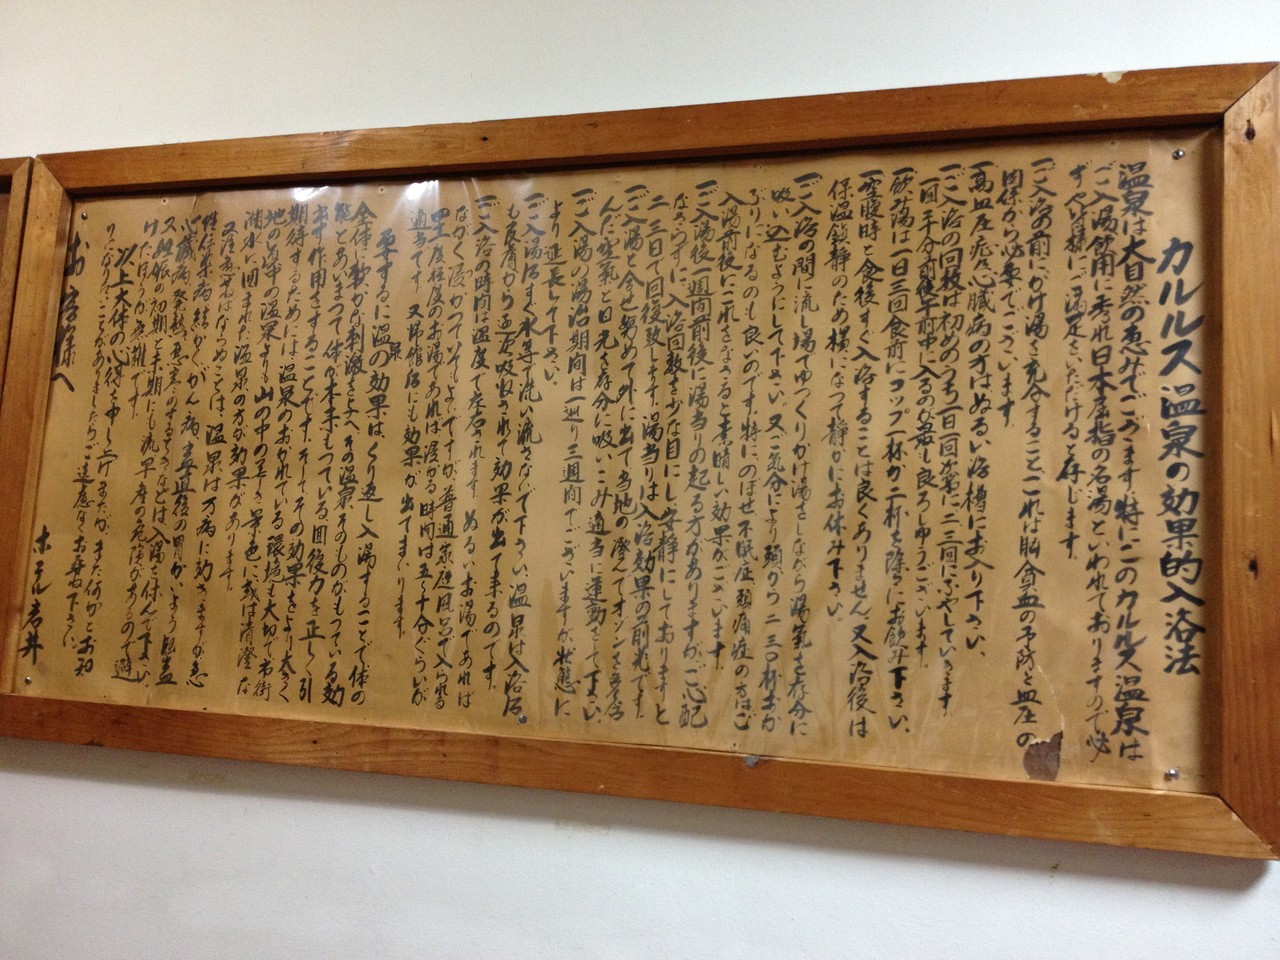 カルルス温泉の効果的入浴法
温泉は大自然の恵みでございます 特にこのカルルス温泉は
ご入湯飲用に秀れ日本屈指の名湯といわれておりますので必
ずや皆様にご満足をいただけると存じます。
一、ご入浴の前にかけ湯を充分すること、これは脳貧血の予防と血圧の
関係から必要でございます。
一、高血圧症、心臓病の方はぬるい浴槽にお入り下さい、
一、ご入浴の回数は初めのうち一日一回次第に二、三回にふやしていきます
一、飲湯は一日三回食前にコップ一杯か二杯を除々にお飲み下さい、
一、空腹時と食後すぐ入浴することは良くありません、又入浴後は
保温鎮静のため横になって静かにお休み下さい。
一、ご入浴の間に流し場でゆっくりかけ湯をしながら湯気を存分に
吸い込むようにして下さい、又ご気分により頭から二、三〇杯おか
ぶりになるのも良いのです、特に、のぼせ不眠症頭痛症の方はご
入湯前後にこれをなさると素晴しい効果がございます、
一、ご入湯後一週間前後に湯当りの起る方がありますが、ご心配
なさらずに、入浴回数を少な目にし安静にしておりますと
二、三日で回復致します、湯当りは入浴効果の前兆です、
一、ご入湯と合せ努めて外に出て当地の澄んでオゾンを含
んだ空気と日光を存分に吸いこみ適当に運動をして下さい、
一、ご入湯の湯治期間は一巡り三週間でございますが、状態に
より延長して下さい、
一、ご入湯後すぐ水等で洗い流さないで下さい、温泉は入浴后
も皮膚から逐次吸収されて効果が出て来るのです、
一、ご入浴の時間は温度で左右されます ぬるいお湯であれば
ながく浸かっていてもよいですが、普通家庭風呂で入られる
四十二度程度のお湯であれば浸かる時間は五〜十分ぐらいが
適当です、又帰館后にも効果が出てまいります、
要するに温泉の効果は、くり返し入湯することで体の
全体に軟かな刺激を与へ、その温泉、そのものがもっている効
能とあいまって体が本来もっている回復力を正しく引
出す作用をすることです、そしてその効果をより大きく
期待するためには、温泉のおかれている環境も大切で市街
地の街中の温泉よりも山の中の
湖水に囲まれた温泉の方が効果があります、
又注意せねばならぬことは、温泉は万病に効きますが急
性伝染病、結かく、がん病、
心臓病、発熱、悪寒のするときなどは、入湯を慎んで下さい、
又妊娠の初期と末期にも流早産の危険があるので避
けたほうが無難です、
以上大体の心得を申し上げましたが、また何かとお判
りにならないことがありましたらご遠慮なくお尋ね下さい、
お客様へ
ホテル岩井